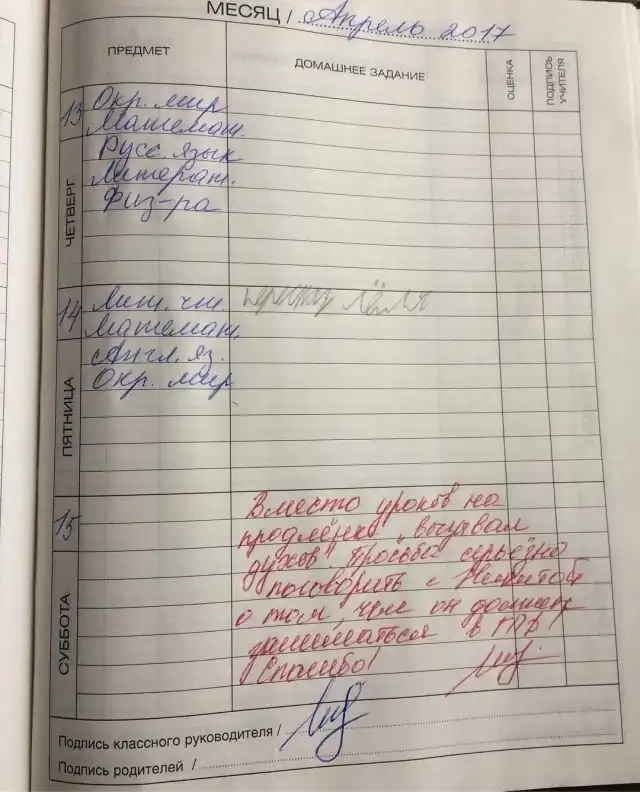 МЕСЯЦ / Апрель 2017
ПРЕДМЕТ
ДОМАШНЕЕ ЗАДАНИЕ
ОЦЕНКА
ПОДПИСЬ УЧИТЕЛЯ
13
ЧЕТВЕРГ
Окр. мир
Математ.
Русс. язык
Литерат.
Физ-ра
14
ПЯТНИЦА
Лит. чт.
Лёля
Математ.
Англ. яз.
Окр. мир
15
СУББОТА
Вместо уроков на
продлёнке "вызывал
духов". Просьба серьёзно
поговорить с Никитой
о том, чем он должен
заниматься в ГПД!
Спасибо!
Подпись классного руководителя /
Подпись родителей /